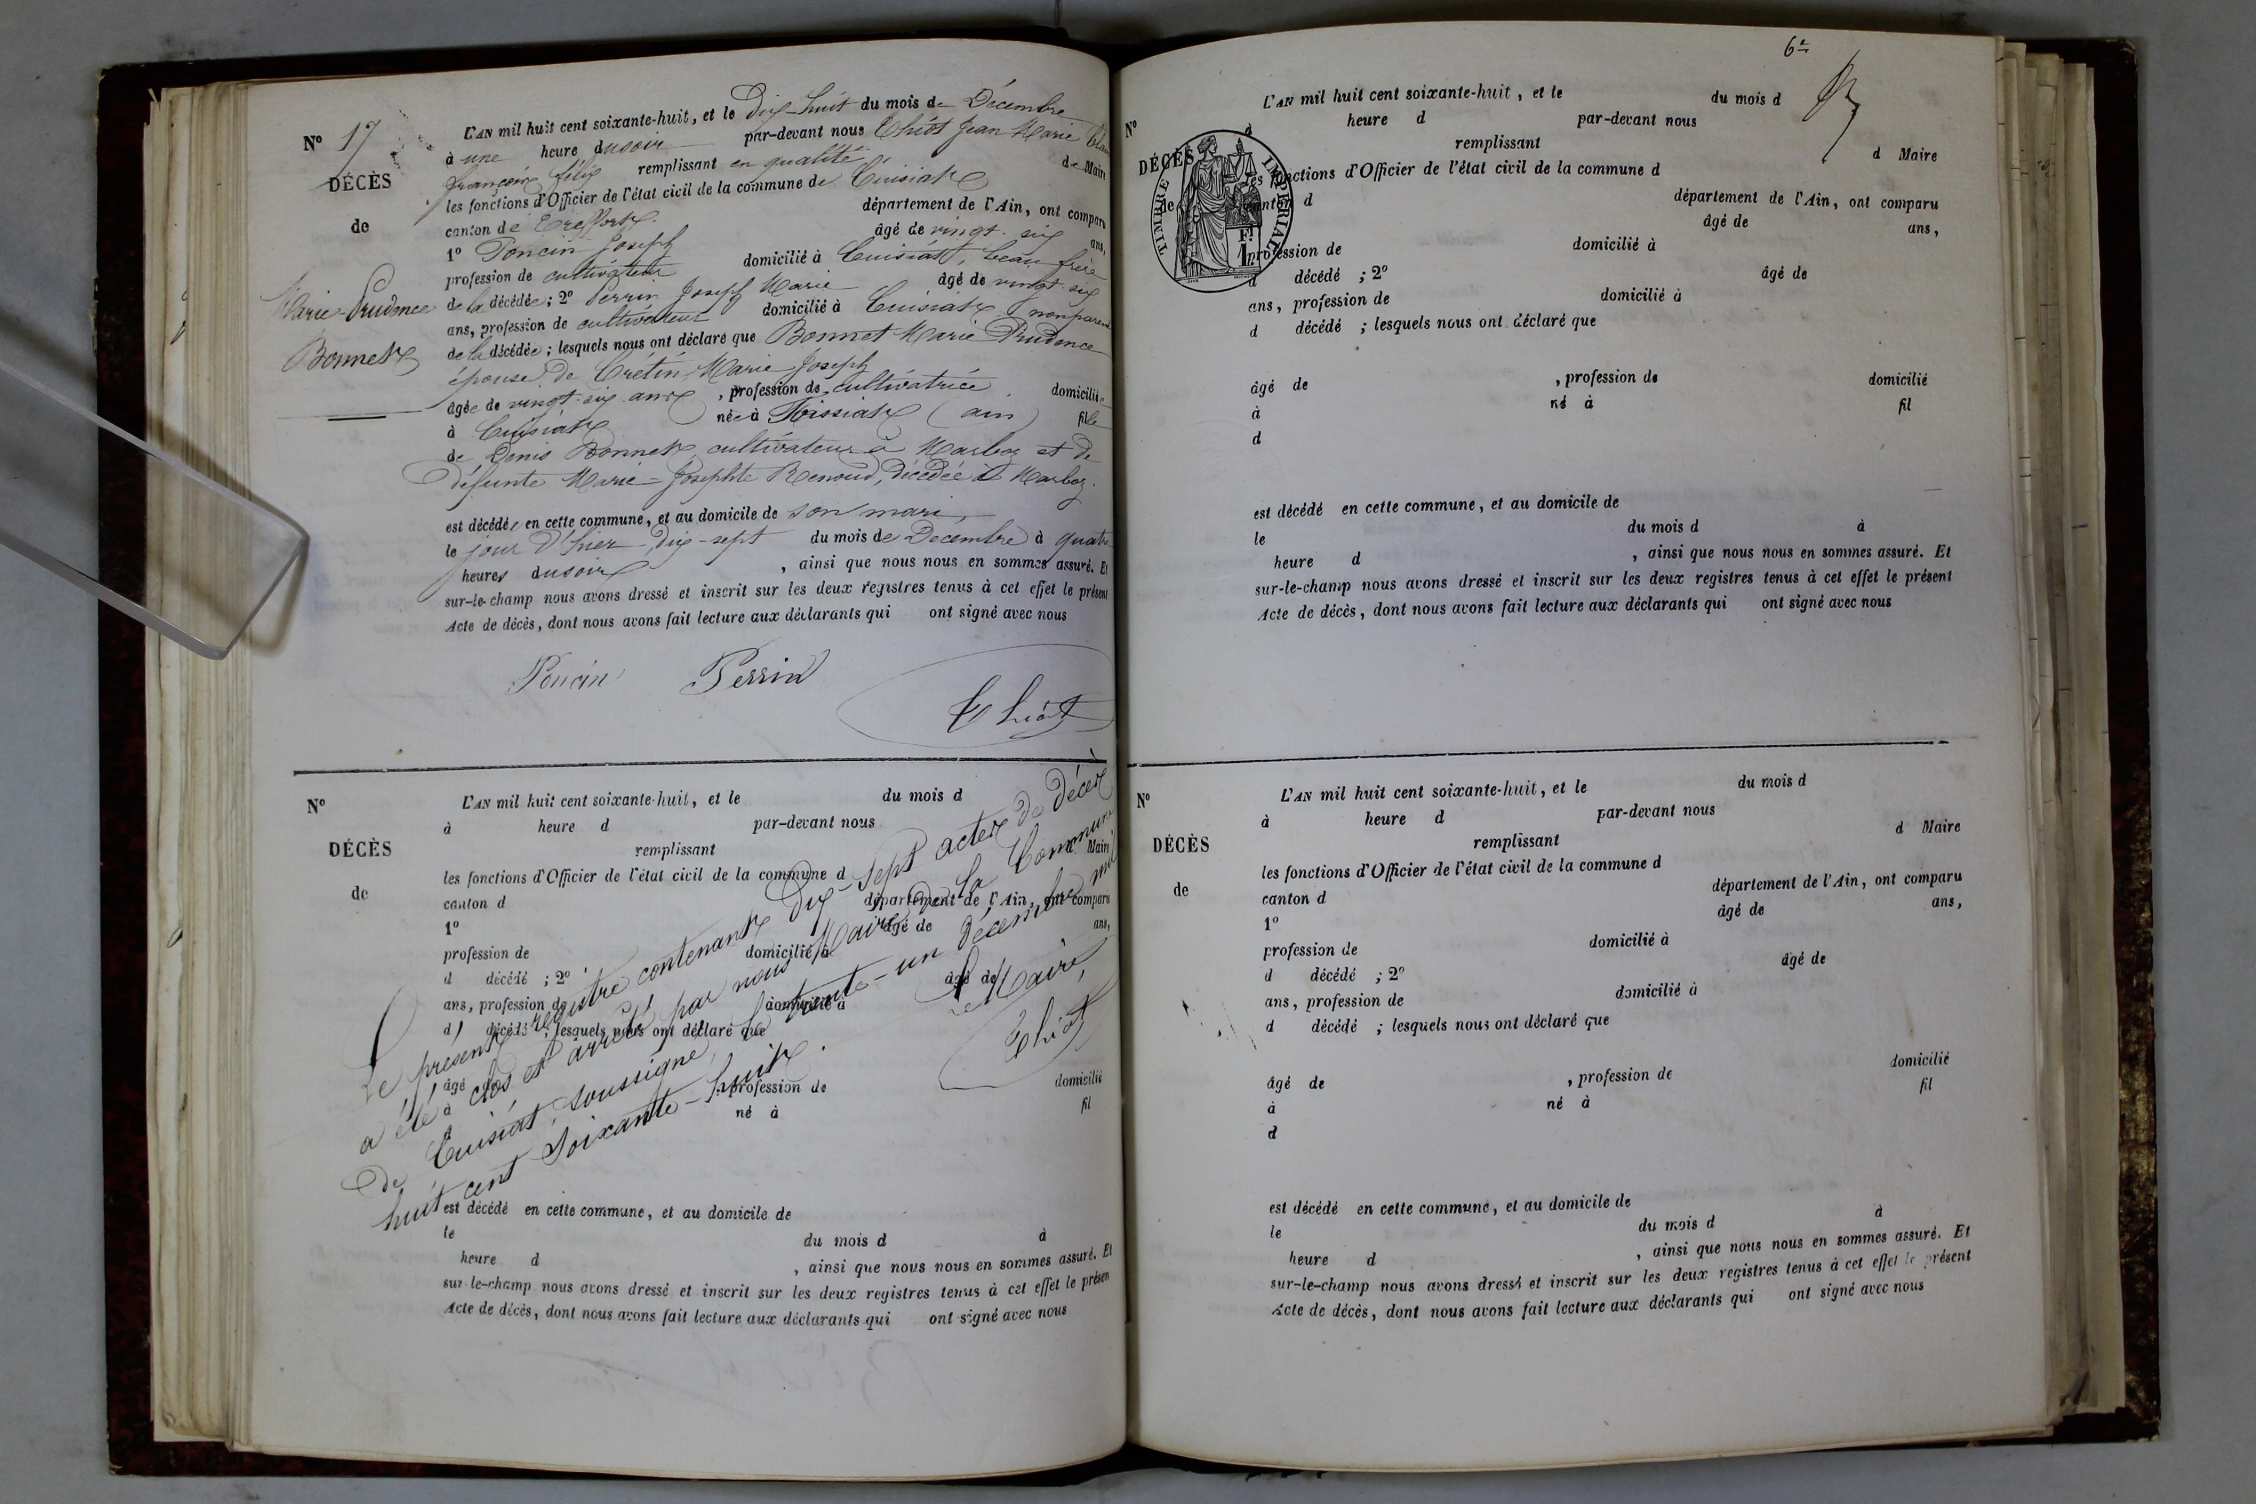 N° 17
DÉCÈS
de
Marie-Prudence
Bonnet
L'AN mil huit cent soixante-huit, et le Dix-huit du mois de Décembre
à une heure du soir par-devant nous Chiôt Jean Marie
françois félix remplissant en qualité de Maire
les fonctions d'Officier de l'état civil de la commune de Cuisiat
canton de Treffort département de l'Ain, ont comparu
1° Poncin Joseph âgé de vingt-six ans,
profession de cultivateur domicilié à Cuisiat, beau frère
de la décédée; 2° Perrin Joseph Marie âgé de vingt six
ans, profession de cultivateur domicilié à Cuisiat, non parent
de la décédée; lesquels nous ont déclaré que Bonnet Marie Prudence
épouse de Crétin Marie Joseph
âgée de vingt-six ans, profession de cultivatrice domiciliée
à Cuisiat née à (ain) fille
de Denis Bonnet cultivateur à Marboz et de
défunte Marie-Josephte Renoud, décédée à Marboz.
est décédée en cette commune, et au domicile de son mari,
le jour d'hier, dix-sept du mois de Decembre à quatre
heures du soir, ainsi que nous nous en sommes assuré. Et
sur-le-champ nous avons dressé et inscrit sur les deux registres tenus à cet effet le présent
Acte de décès, dont nous avons fait lecture aux déclarants qui ont signé avec nous
Poncin Perrin
Chiôt
N°
DÉCÈS
de
L'AN mil huit cent soixante-huit, et le du mois d
à heure d par-devant nous
remplissant d Maire
les fonctions d'Officier de l'état civil de la commune d
canton d département de l'Ain, ont comparu
1° âgé de ans,
profession de domicilié à
d décédé ; 2° âgé de
ans, profession de domicilié à
d décédé ; lesquels nous ont déclaré que
âgé de , profession de domicilié
à né à fil
d
Le présent registre contenant Dix-sept actes de décès
a été clos et arrêté par nous Maire de la Commune
de Cuisiat, soussigné, le trente-un décembre mil
huit cent soixante-huit.
Le Maire,
Chiôt
est décédé en cette commune, et au domicile de
le du mois d à
heure d , ainsi que nous nous en sommes assuré. Et
sur-le-champ nous avons dressé et inscrit sur les deux registres tenus à cet effet le présen
Acte de décès, dont nous avons fait lecture aux déclarants qui ont signé avec nous
6e
N°
DÉCÈS
de
TIMBRE IMPÉRIAL
1 Fr
L'AN mil huit cent soixante-huit, et le du mois d
à heure d par-devant nous
remplissant d Maire
les fonctions d'Officier de l'état civil de la commune d
canton d département de l'Ain, ont comparu
âgé de ans,
profession de domicilié à
d décédé ; 2° âgé de
ans, profession de domicilié à
d décédé ; lesquels nous ont déclaré que
âgé de , profession de domicilié
à né à fil
d
est décédé en cette commune, et au domicile de
le du mois d à
heure d , ainsi que nous nous en sommes assuré. Et
sur-le-champ nous avons dressé et inscrit sur les deux registres tenus à cet effet le présent
Acte de décès, dont nous avons fait lecture aux déclarants qui ont signé avec nous
N°
DÉCÈS
de
L'AN mil huit cent soixante-huit, et le du mois d
à heure d par-devant nous
remplissant d Maire
les fonctions d'Officier de l'état civil de la commune d
canton d département de l'Ain, ont comparu
1° âgé de ans,
profession de domicilié à
d décédé ; 2° âgé de
ans, profession de domicilié à
d décédé ; lesquels nous ont déclaré que
âgé de , profession de domicilié
à né à fil
d
est décédé en cette commune, et au domicile de
le du mois d à
heure d , ainsi que nous nous en sommes assuré. Et
sur-le-champ nous avons dressé et inscrit sur les deux registres tenus à cet effet le présent
Acte de décès, dont nous avons fait lecture aux déclarants qui ont signé avec nous